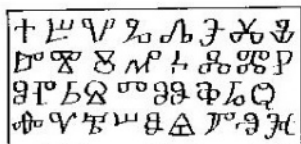 Ⰰ Ⰱ Ⰲ Ⰳ Ⰴ Ⰵ Ⰶ Ⰷ
Ⰸ Ⰺ Ⰹ Ⰼ Ⰽ Ⰾ Ⰿ Ⱀ
Ⱁ Ⱂ Ⱃ Ⱄ Ⱅ Ⱆ Ⱇ Ⱈ Ⱉ
Ⱋ Ⱌ Ⱍ Ⱎ Ⱏ Ⱑ Ⱓ